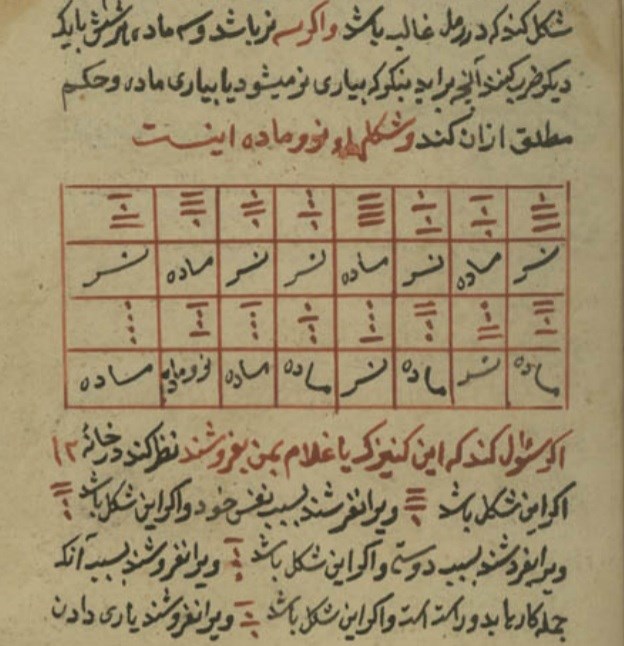 شکل کند که در رمل غالب باشد واکر سه نر باشد و سه ماده هر شش بایکد
دیکر ضرب کنند آنچه براید بنکر که بیاری نر میشود یا بیاری ماده وحکم
مطلق ازان کند وشکلهای نر و ماده اینست
نر ماده نر ماده نر نر ماده نر
ماده نر ماده نر ماده ماده نر و ماده ماده
اکر سئوال کند که این کنیزک یا غلام بمن بفروشند نظر کند در خانهٔ ۱۲
اکر این شکل باشد ویرا نفرشند بسبب نفس خود واکر این شکل باشد
ویرا بفرشند بسبب دوستی واکر این شکل باشد ویرا نفروشند بسبب آنکه
جمله کارها بدو راست است واکر این شکل باشد ویرا نفروشند یاری دادن